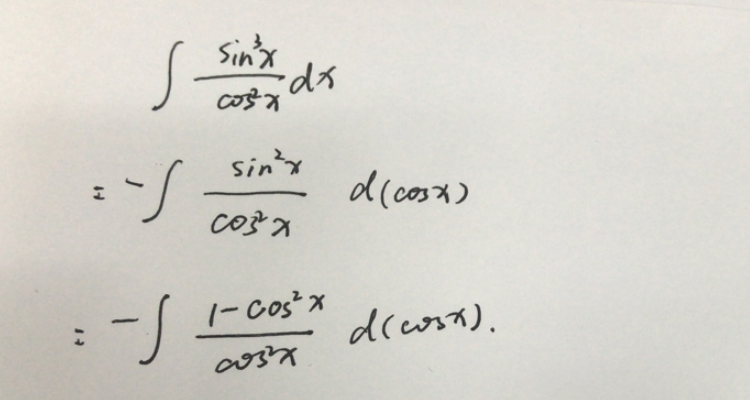 ∫ sin³x/cos²x dx
= -∫ sin²x/cos²x d(cosx)
= -∫ 1-cos²x/cos²x d(cosx).